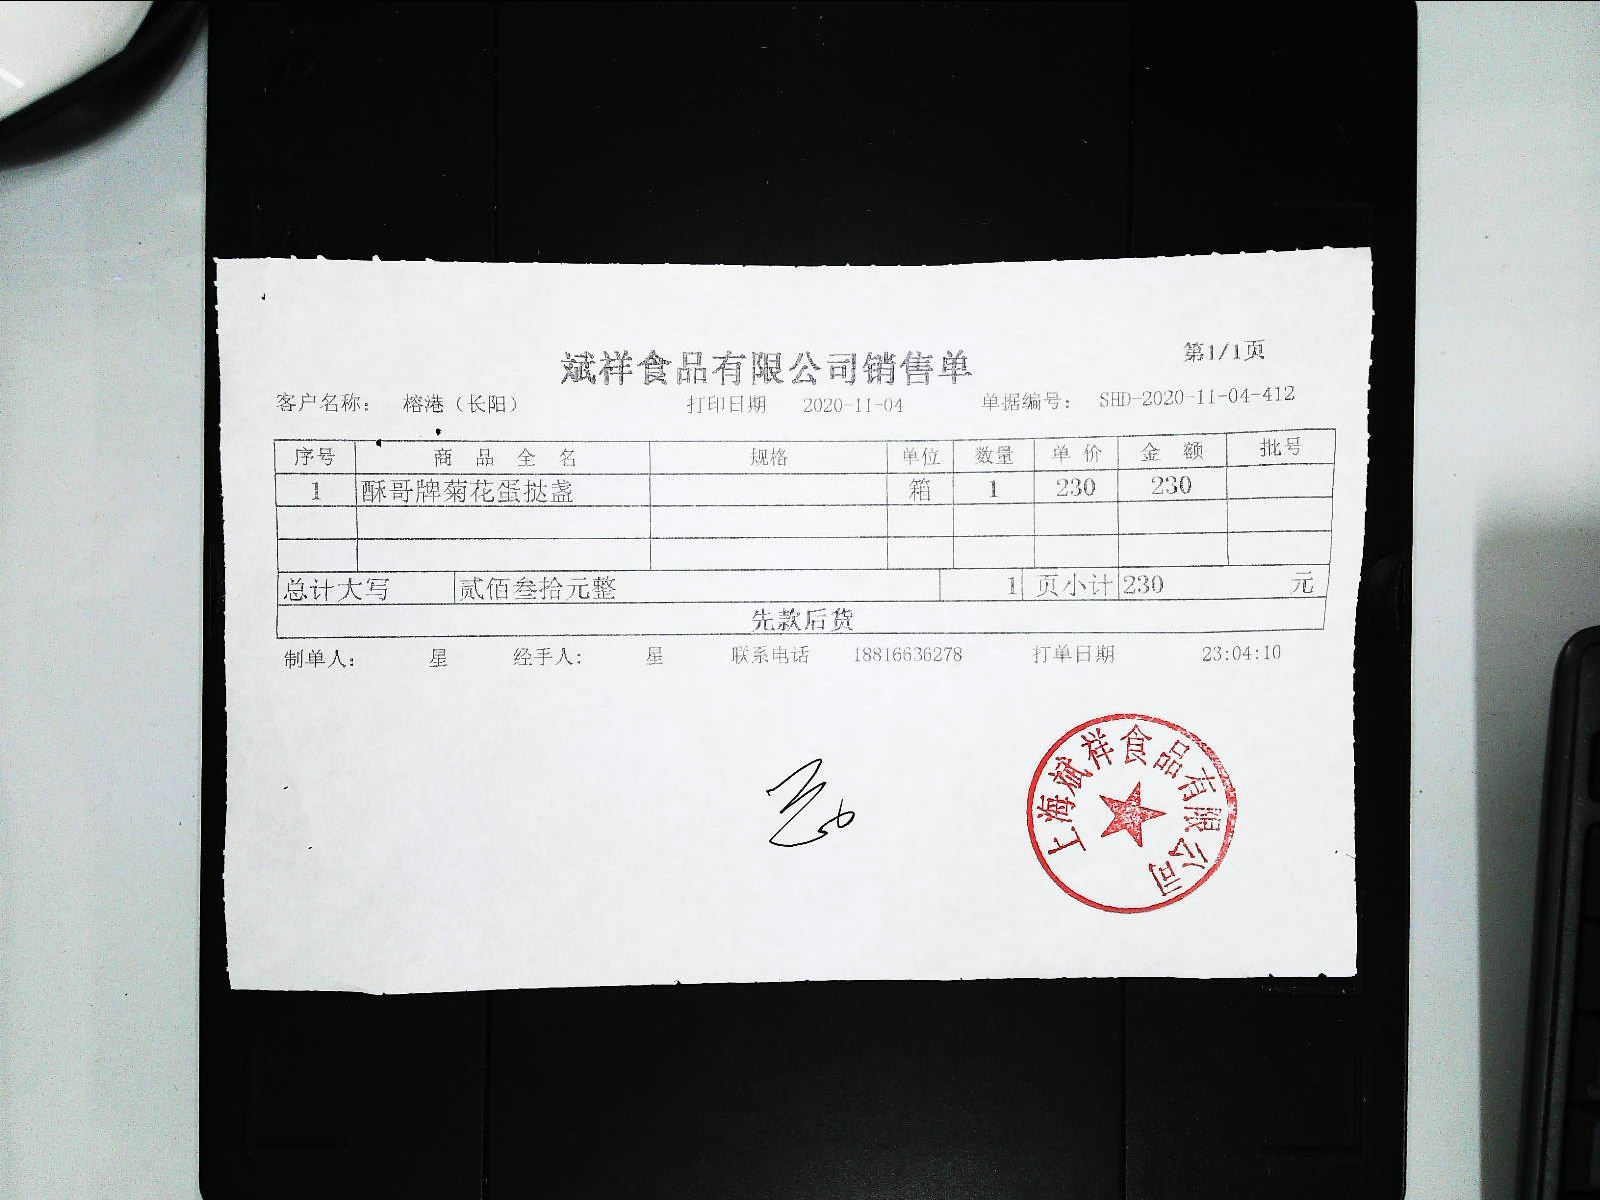 第1/1页
斌祥食品有限公司销售单
客户名称： 榕港（长阳） 打印日期 2020-11-04 单据编号： SHD-2020-11-04-412
序号 商 品 全 名 规格 单位 数量 单 价 金 额 批号
1 酥哥牌菊花蛋挞盏 箱 1 230 230
总计大写 贰佰叁拾元整 1 页小计 230 元
先款后货
制单人： 星 经手人： 星 联系电话 18816636278 打单日期 23:04:10
上海斌祥食品有限公司